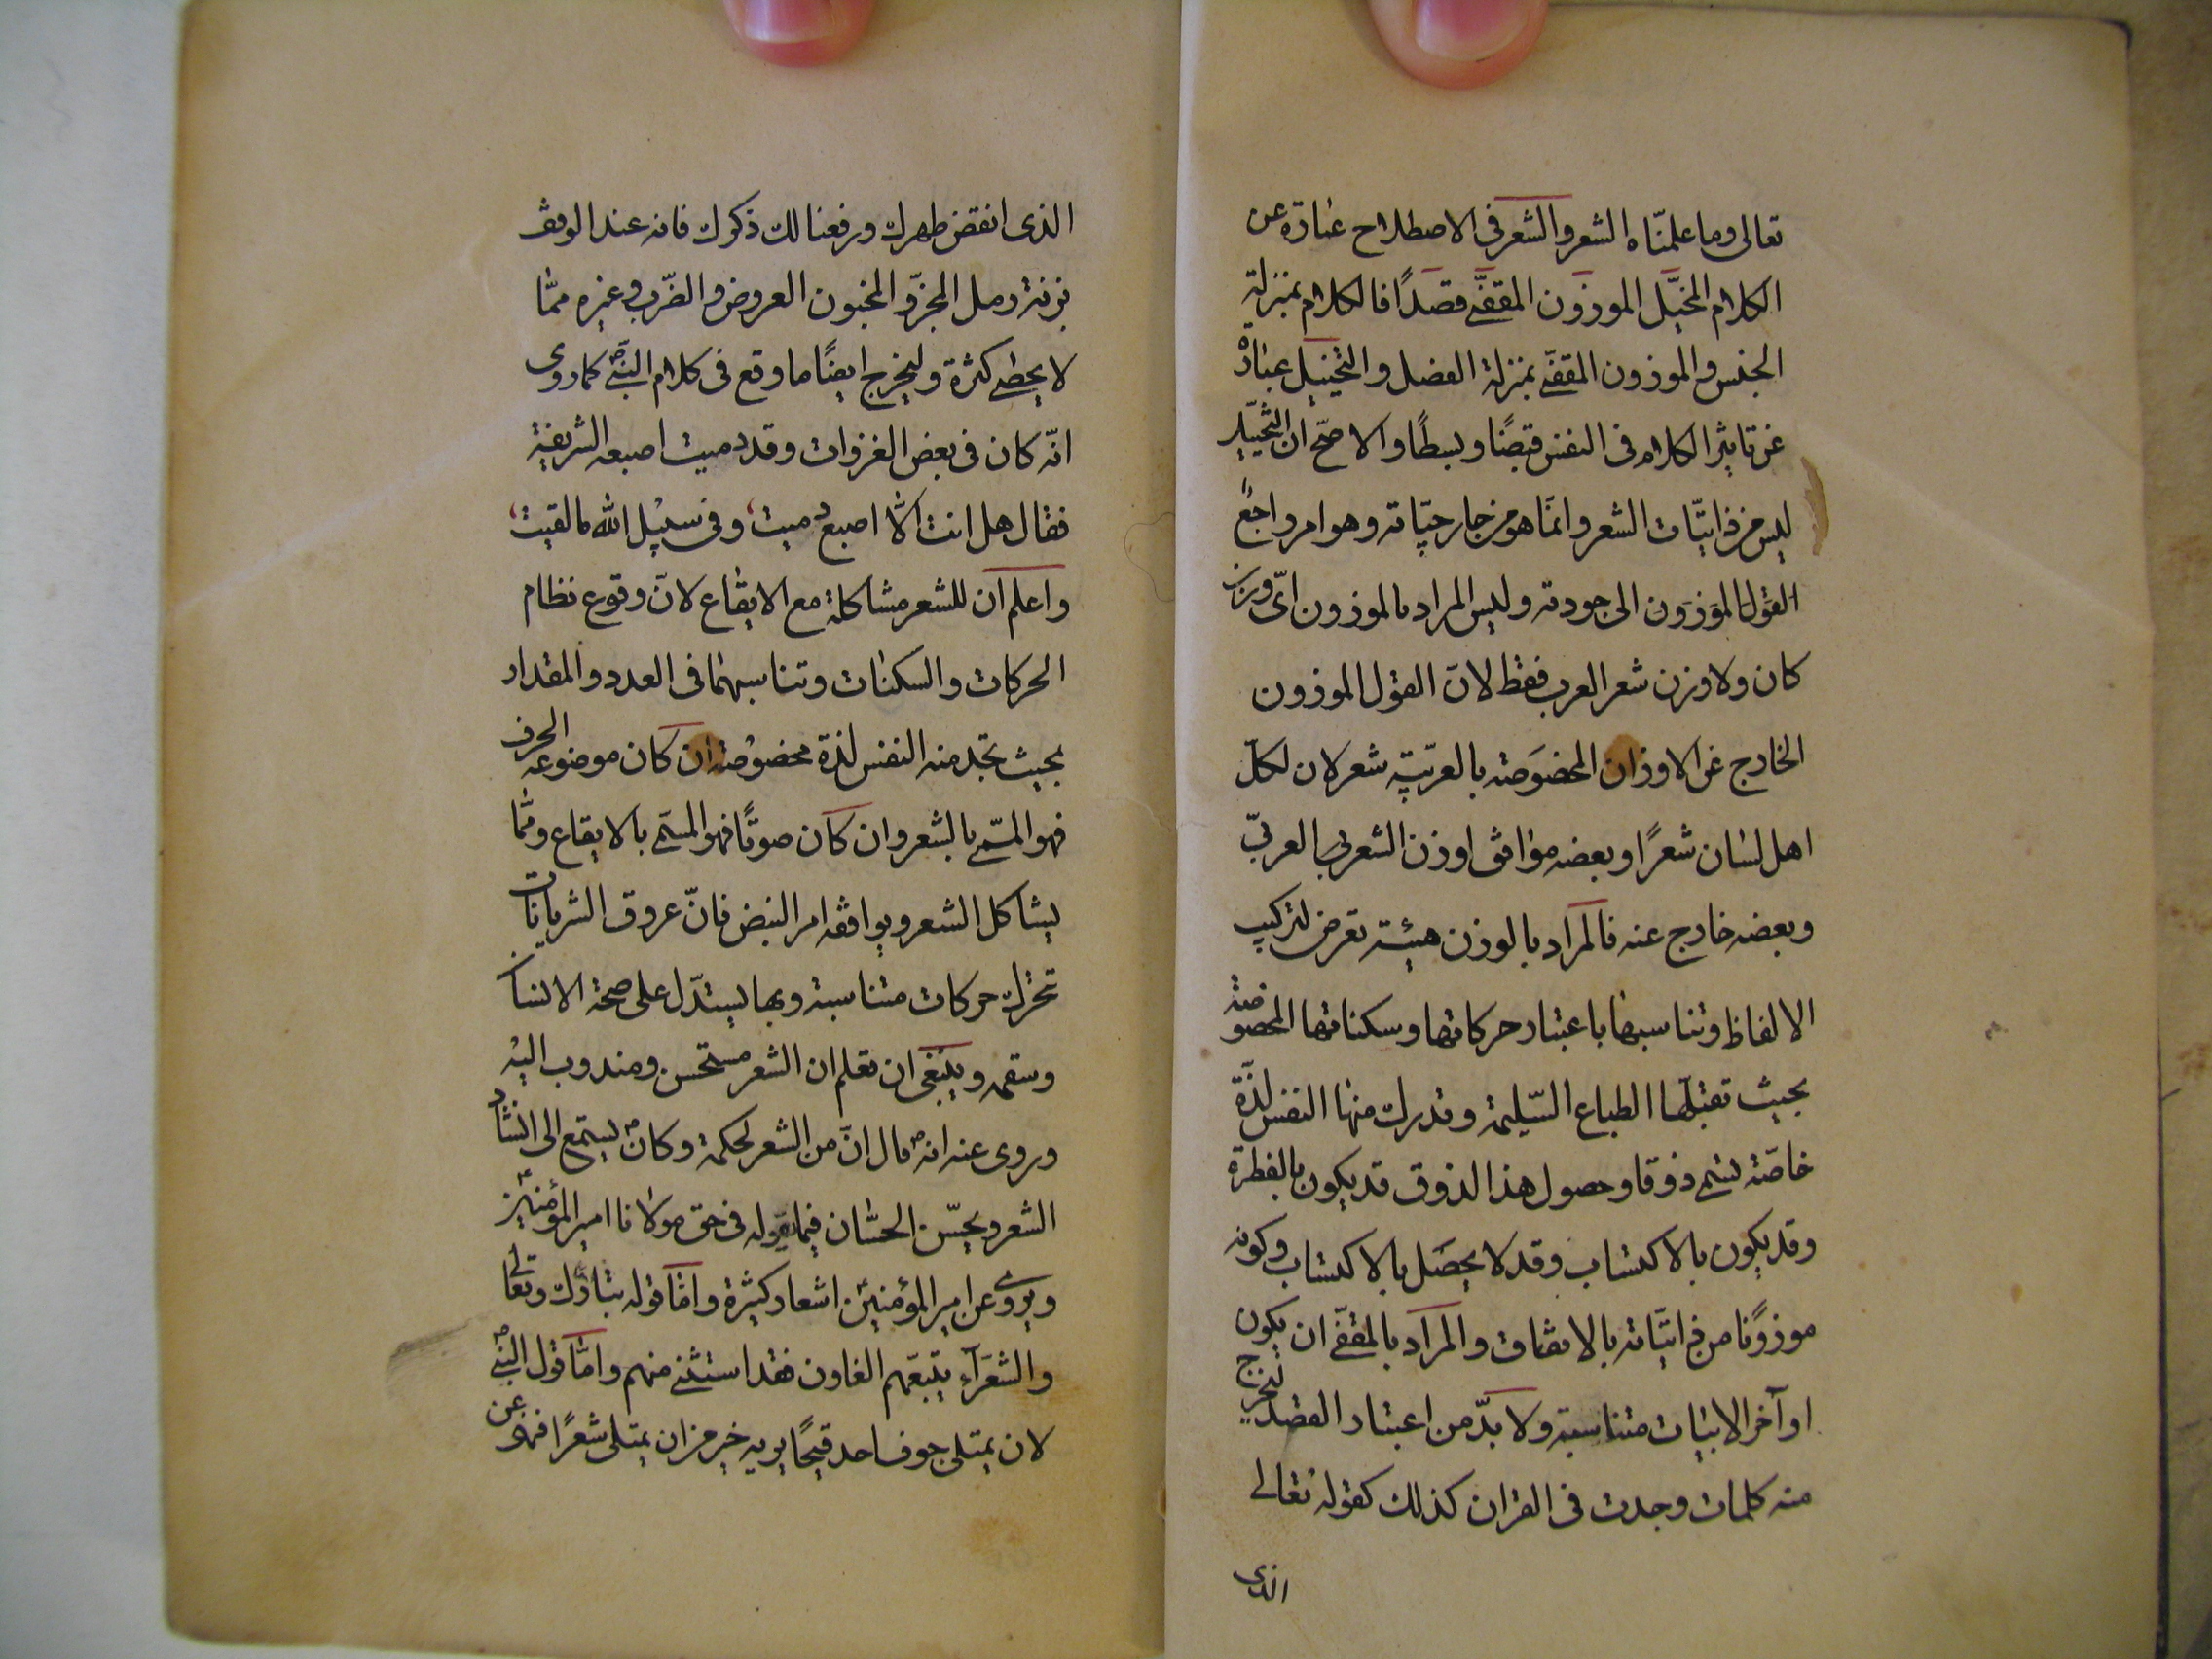 تعالى وما علمناه الشعر والشعر فى الاصطلاح عبارة عن
الكلام المخيّل الموزون المقفّى قصدًا فالكلام بمنزلة
الجنس والموزون المقفّى بمنزلة الفصل والتخييل عبارة
عن تاثير الكلام فى النفس قبضًا وبسطًا والاصحّ ان التخييل
ليس من ذاتيّات الشعر وانّما هو من خارجيّاته وهو امر واجعٌ
القول الموزون الى جودته وليس المراد بالموزون اىّ وزن
كان ولا وزن شعر العرب فقط لانّ القول الموزون
الخارج عن الاوزان المخصوصة بالعربيّة شعر لان لكلّ
اهل لسان شعرًا وبعضه موافق اوزن الشعر العربىّ
وبعضه خارج عنه فالمراد بالوزن هيئة تعرض لتركيب
الالفاظ وتناسبها باعتبار حركاتها وسكناتها المخصوصة
بحيث تقبلها الطباع السّليمة وتدرك منها النفس لذّة
خاصّة تسمى ذوقا وحصول هذا الذوق قد يكون بالفطرة
وقد يكون بالاكتساب وقد لا يحصل بالاكتساب وكونه
موزونًا من ذاتيّاته بالاتفاق والمراد بالمقفّى ان يكون
اوآخر الابيات متناسبة ولا بدّ من اعتبار القصد ليخرج
منه كلمات وجدت فى القران كذلك كقوله تعالى
الذى
الذى انقض ظهرك ورفعنا لك ذكرك فانه عند الوقف
بزنة رمل المجزّو المخبون العروض والضّرب وغيره ممّا
لا يحصى كثرة وليخرج ايضًا ما وقع فى كلام النبى ص كما روى
انّه كان فى بعض الغزوات وقد دميت اصبعه الشريفة
فقال هل انت الّا اصبع دميت، وفى سبيل الله ما لقيت،
واعلم ان للشعر مشاكلة مع الايقاع لانّ وقوع نظام
الحركات والسكنات وتناسبهما فى العدد والمقدار
بحيث تجد منه النفس لذة مخصوصة ان كان موضوعه الحرف
فهو المسمّى بالشعر وان كان صوتًا فهو المسمى بالايقاع وممّا
يشاكل الشعر ويوافقه امر النبض فانّ عروق الشريانات
تحرّك حركات متناسبة وبها يستدّل على صحة الانسا
وسقمه وينبغى ان تعلم ان الشعر مستحسن ومندوب اليه
وروى عنه انه ص قال انّ من الشعر لحكمة وكان ص يستمع الى انشاد
الشعر ويحسّن الحسّان فيما يقوله فى حق مولانا امير المؤمنين ع
ويروى عن امير المؤمنين اشعار كثيرة وامّا قوله تبارك وتعالى
والشعرآء يتبعهم الغاون فقد استثنى منهم وامّا قول النبى ص
لان يمتلى جوف احد قيحًا يريه خير من ان يمتلى شعرًا فهو عن